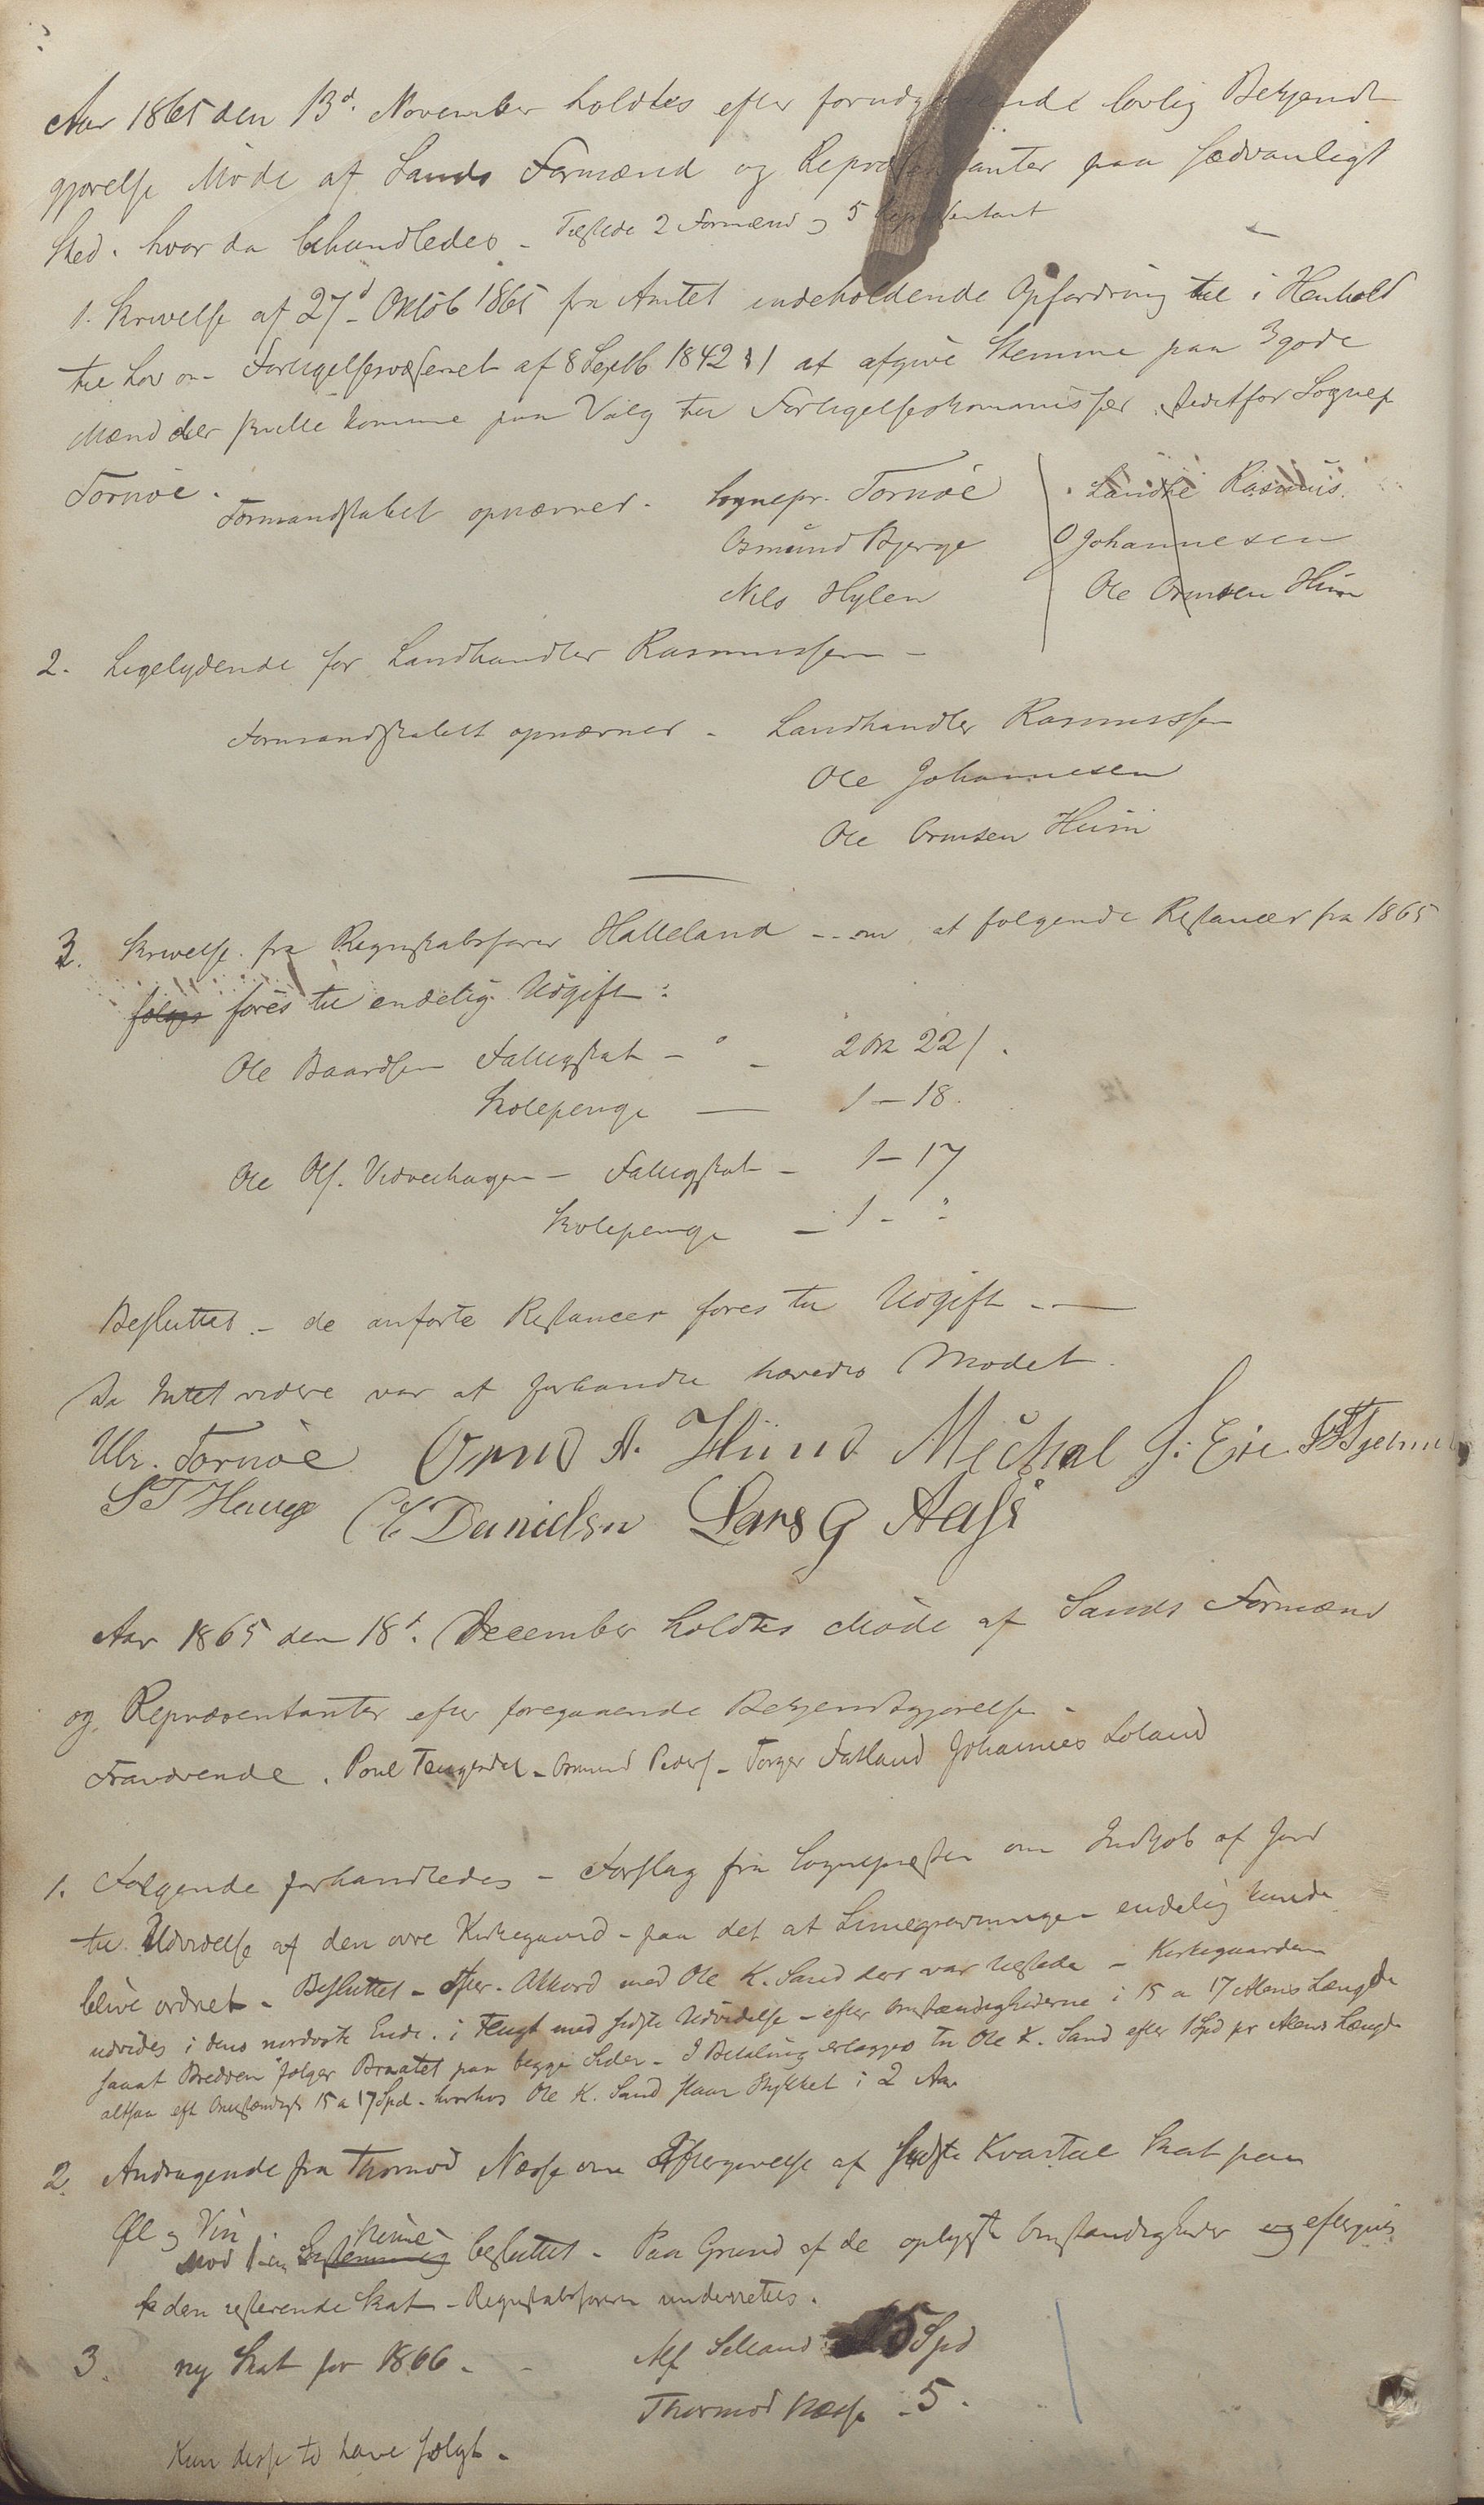 Aar 1865 den 13d. November holdtes efter forudg ende lovlig Bekjendt
gjørelse Møde af Sands Formænd og Repræsentanter paa sædvanligt
Sted. hvor da behandledes – Tilstede 2 Formænd og 5 Repræsentant
1. Skrivelse af 27d Oktob 1865 fra Amtet indeholdende Opfordring til i Henhold
til Lov om Forligelsesvæsenet af 8 Septb 1842 § 1 at afgive Stemme paa 3 gode
Mænd der skulle komme paa Valg til Forligelseskommissær istedetfor Sognep
Tornøe.
Formandskabet opnævner. Sognepr. Tornøe
Osmund Bjerge
Nils Hylen
Landhe Rasmus.
O Johannesen
Ole Ormsen Hiim
2. Ligelydende for Landhandler Rasmussen –
Formandskabet opnævner – Landhandler Rasmussen
Ole Johannesen
Ole Ormsen Hiim
3. Skrivelse fra Regnskabsfører Halleland – om at følgende Restancer fra 1865
følges føres til endelig Udgift:
Ole Baardsen Fattigskat – " – 2 Ort 22 s.
Skolepenge — 1 – 18.
Ole Ols. Vidveihagen – Fattigskat – 1 – 17
Skolepenge – 1 – "
Besluttet – de anførte Restancer føres til Udgift –
Da Intet videre var at forhandle hævedes Mødet.
Ulr. Tornøe Ormd A. Hiim Michal J. Eie
S T Hauge C E Danielsen Lars G Aase
Aar 1865 den 18d. December holdtes Møde af Sands Formænd
og Repræsentanter efter foregaaende Bekjendtgjørelse –
Fraværende. Poul Tengesdal – Osmund Peders – Torger Fatland Johannes Loland
1. Følgende forhandledes – Forslag fra Sognepresten om Indkjøb af Jord
til Udvidelse af den øvre Kirkegaard – paa det at Liniegravningen endelig kunde
blive ordnet – Besluttet – Efter Akkord med Ole K. Sand der var tilstede – Kirkegaarden
udvides i dens nordvste Ende. i Flugt med sidste Udvidelse – efter Omstændighederne i 15 a 17 Alens Længde
saaat Bredden følger Braatet paa begge Sider – I Betaling erlægges til Ole K. Sand efter 1 Spd pr Alens Længde
altsaa eft Omstændigh 15 a 17 Spd – hvorhos Ole K. Sand slaar Stykket i 2 Aar
2. Andragende fra Thormod Næsse om Eftergivelse af sidste Kvartal Skat paa
Øl og Vin
Mod 1 en Stemme besluttet – Paa Grund af de oplyste Omstændigheder eftergives
den resterende Skat – Regnskabsføreren underrettes.
3. ny Skat for 1866 – Alf Selland 5 Spd
Thormod Næsse – 5 –
Kun disse to have solgt –